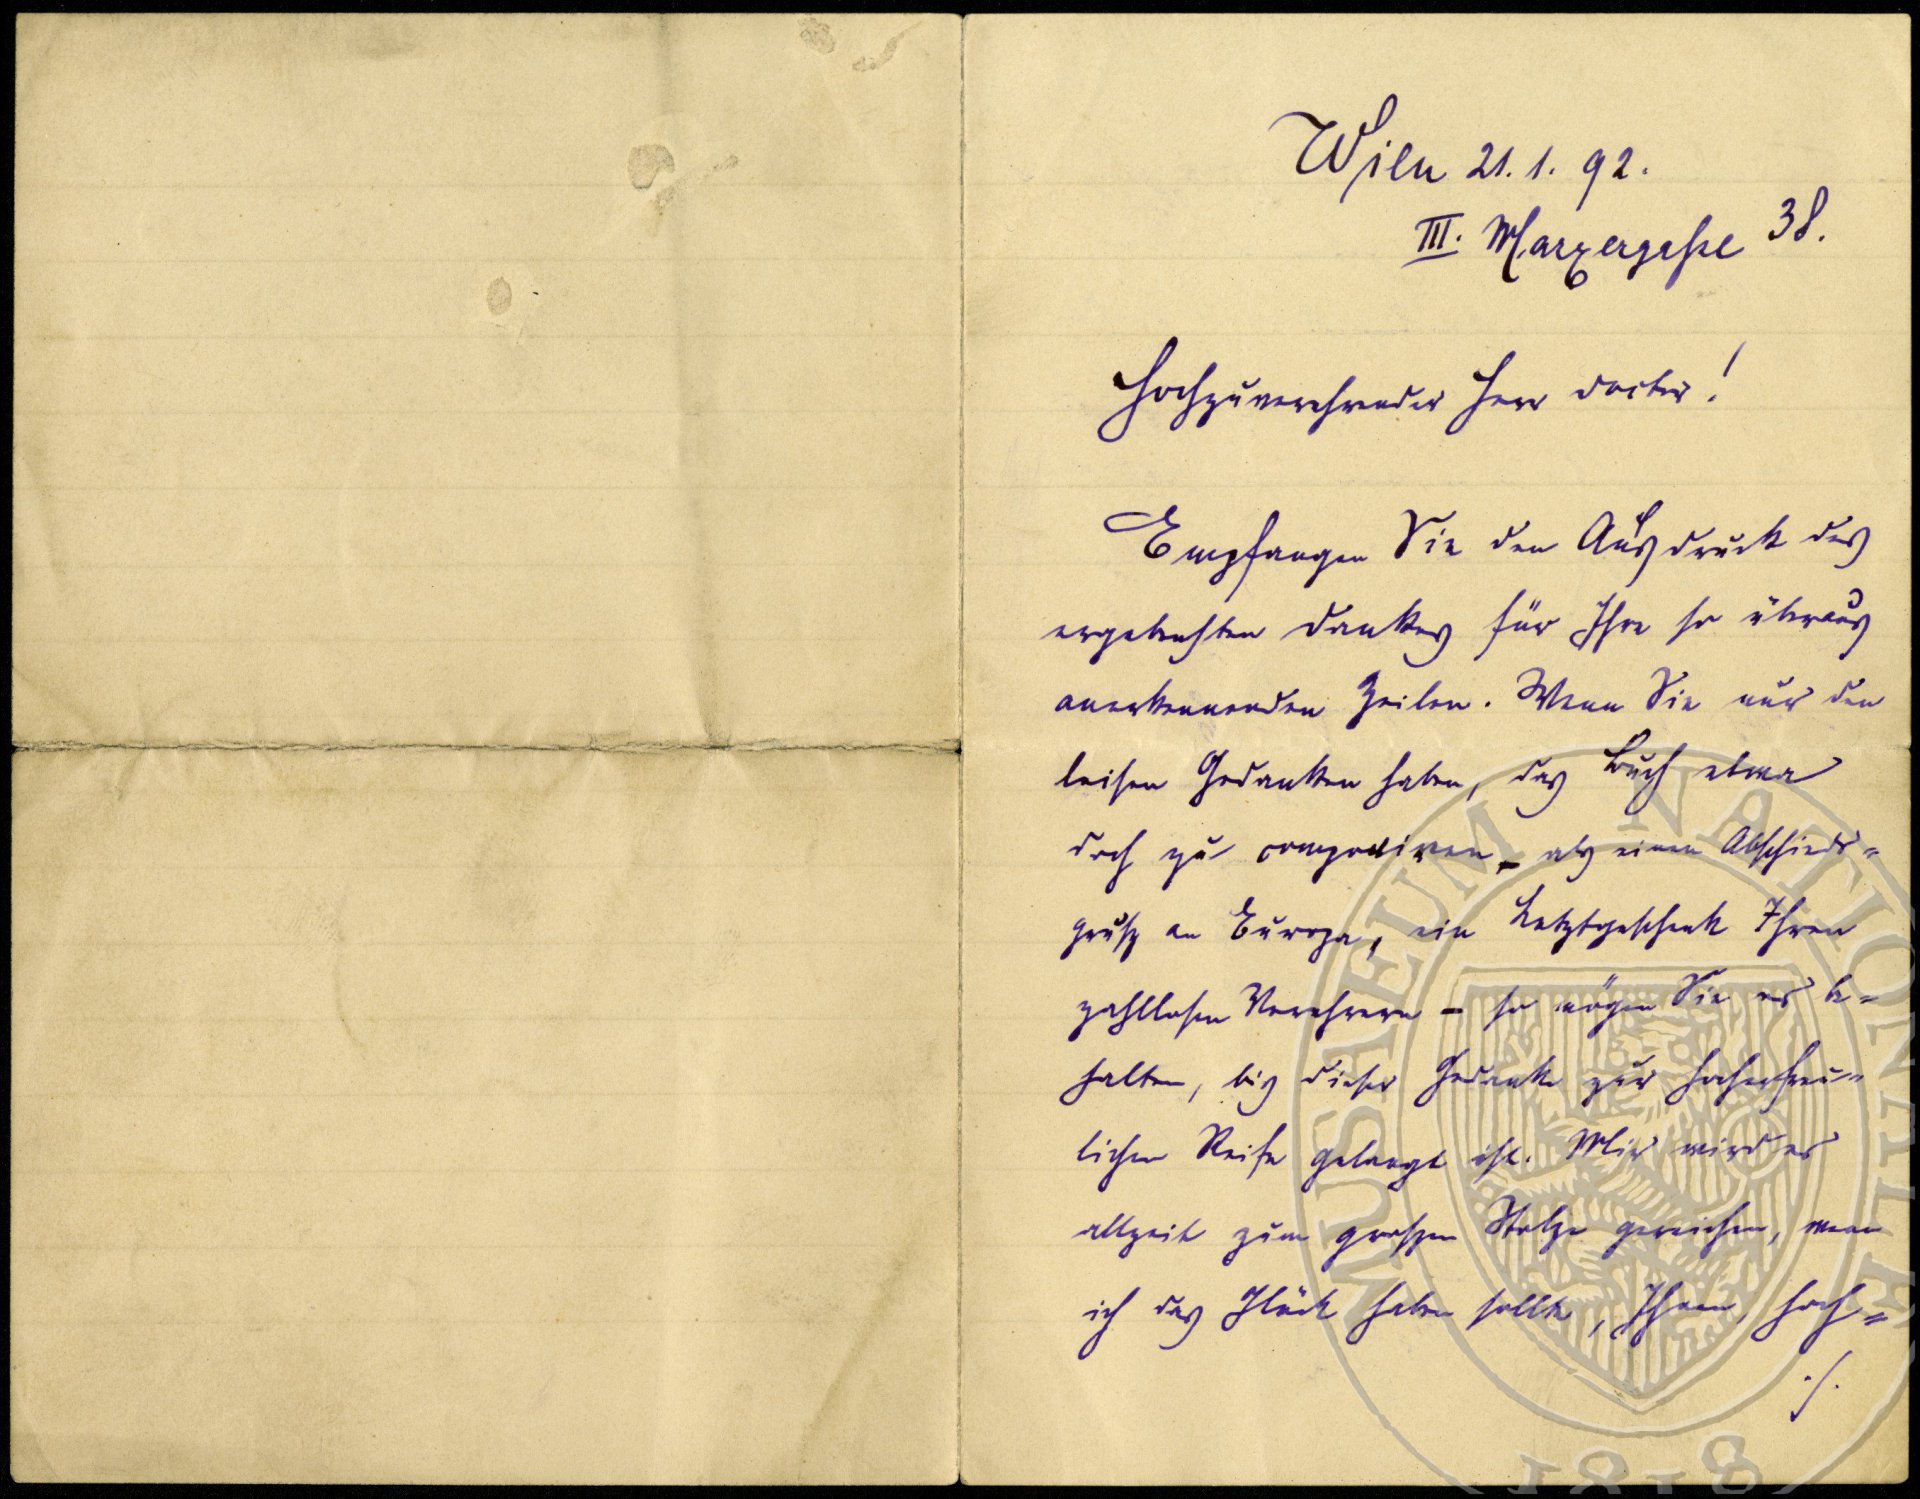 Wien 21. 1. 92.
III. Marxergasse 38.
Hochzuverehrender Herr Doctor!
Empfangen Sie den Ausdruck des
ergebensten Dankes für Ihre so überaus
anerkennenden Zeilen. Wenn Sie nur den
leisen Gedanken haben, das Buch etwa
doch zu componiren – als einen Abschieds=
gruß an Europa, ein Letztgeschenk Ihren
zahllosen Verehrern – so mögen Sie es be=
halten, bis dieser Gedanke zur hocherfreu=
lichen Reife gelangt ist. Mir wird es
allzeit zum großen Stolze gereichen, wenn
ich das Glück haben sollte, Ihnen, hoch=
./.
MUSAEUM NATIONALE
1818